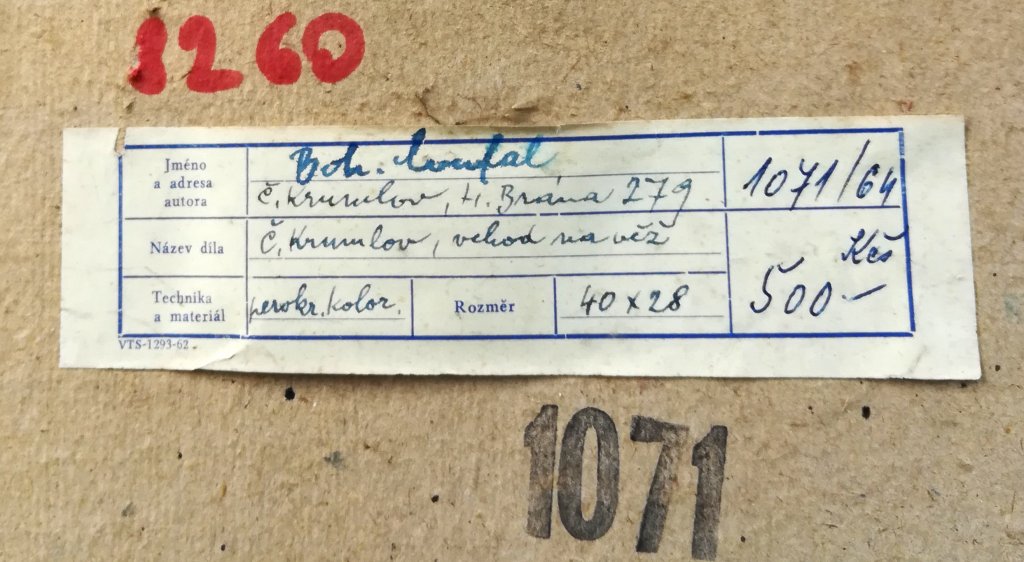 8260
Jméno
a adresa
autora
Boh. Coufal
Č. Krumlov, H. Brána 279.
1071/64
Název díla
Č. Krumlov, vchod na věž
Kčs
500.—
Technika
a materiál
perokr. kolor.
Rozměr
40 x 28
VTS-1293-62
1071